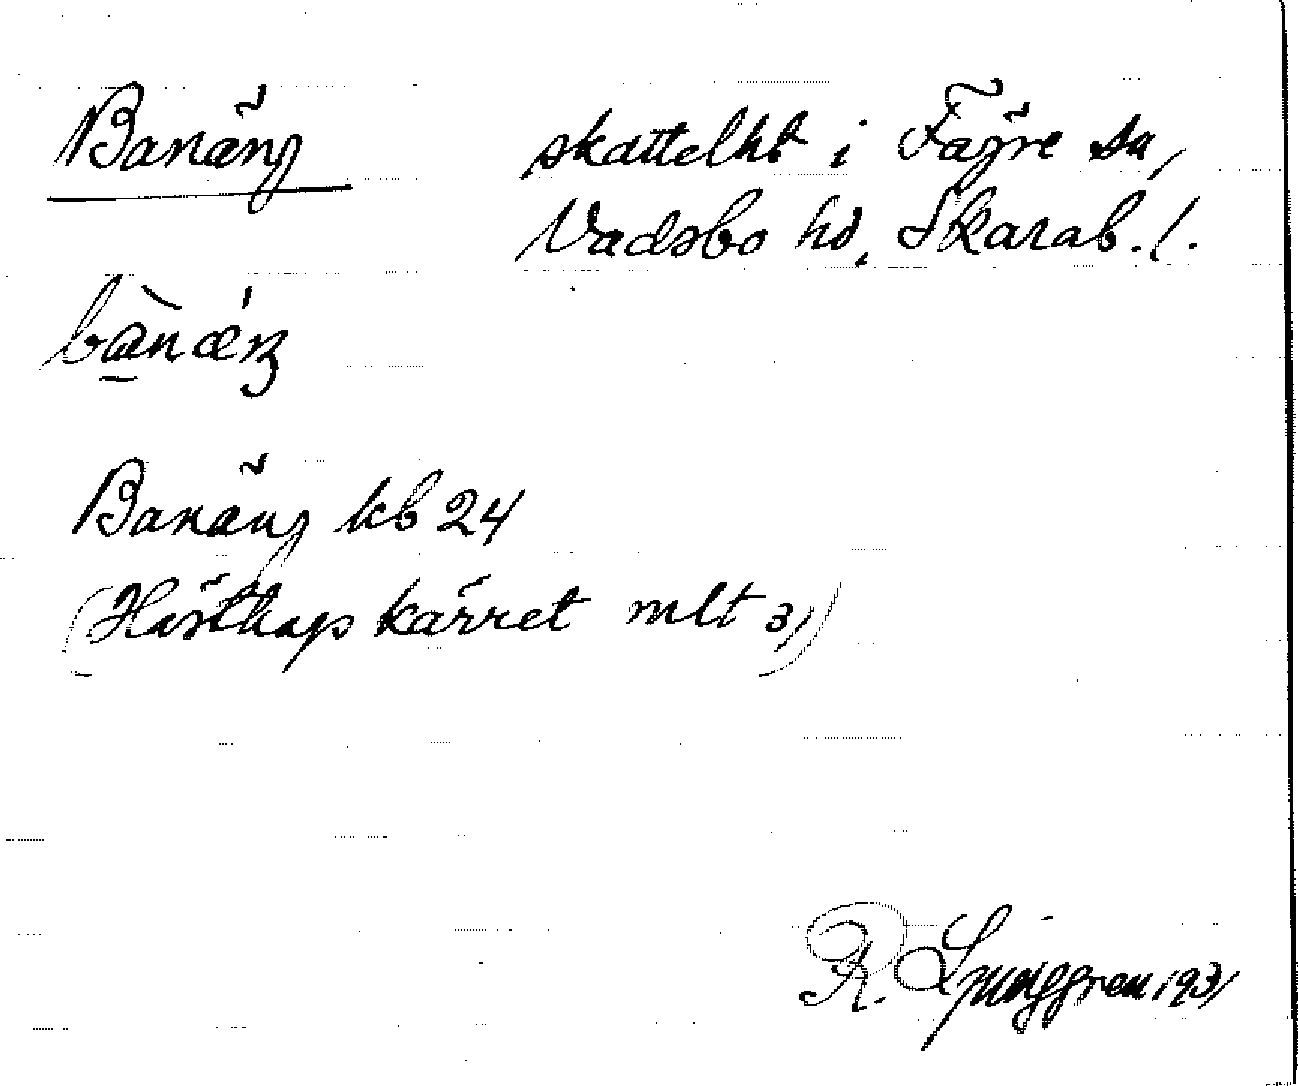 Banäng skattelht i Fägre sn,
Vadsbo hd, Skarab. l.
bànǽŋ
Banäng kb 24
(Hästhagskärret mlt 3/)
R. Ljunggren 1931